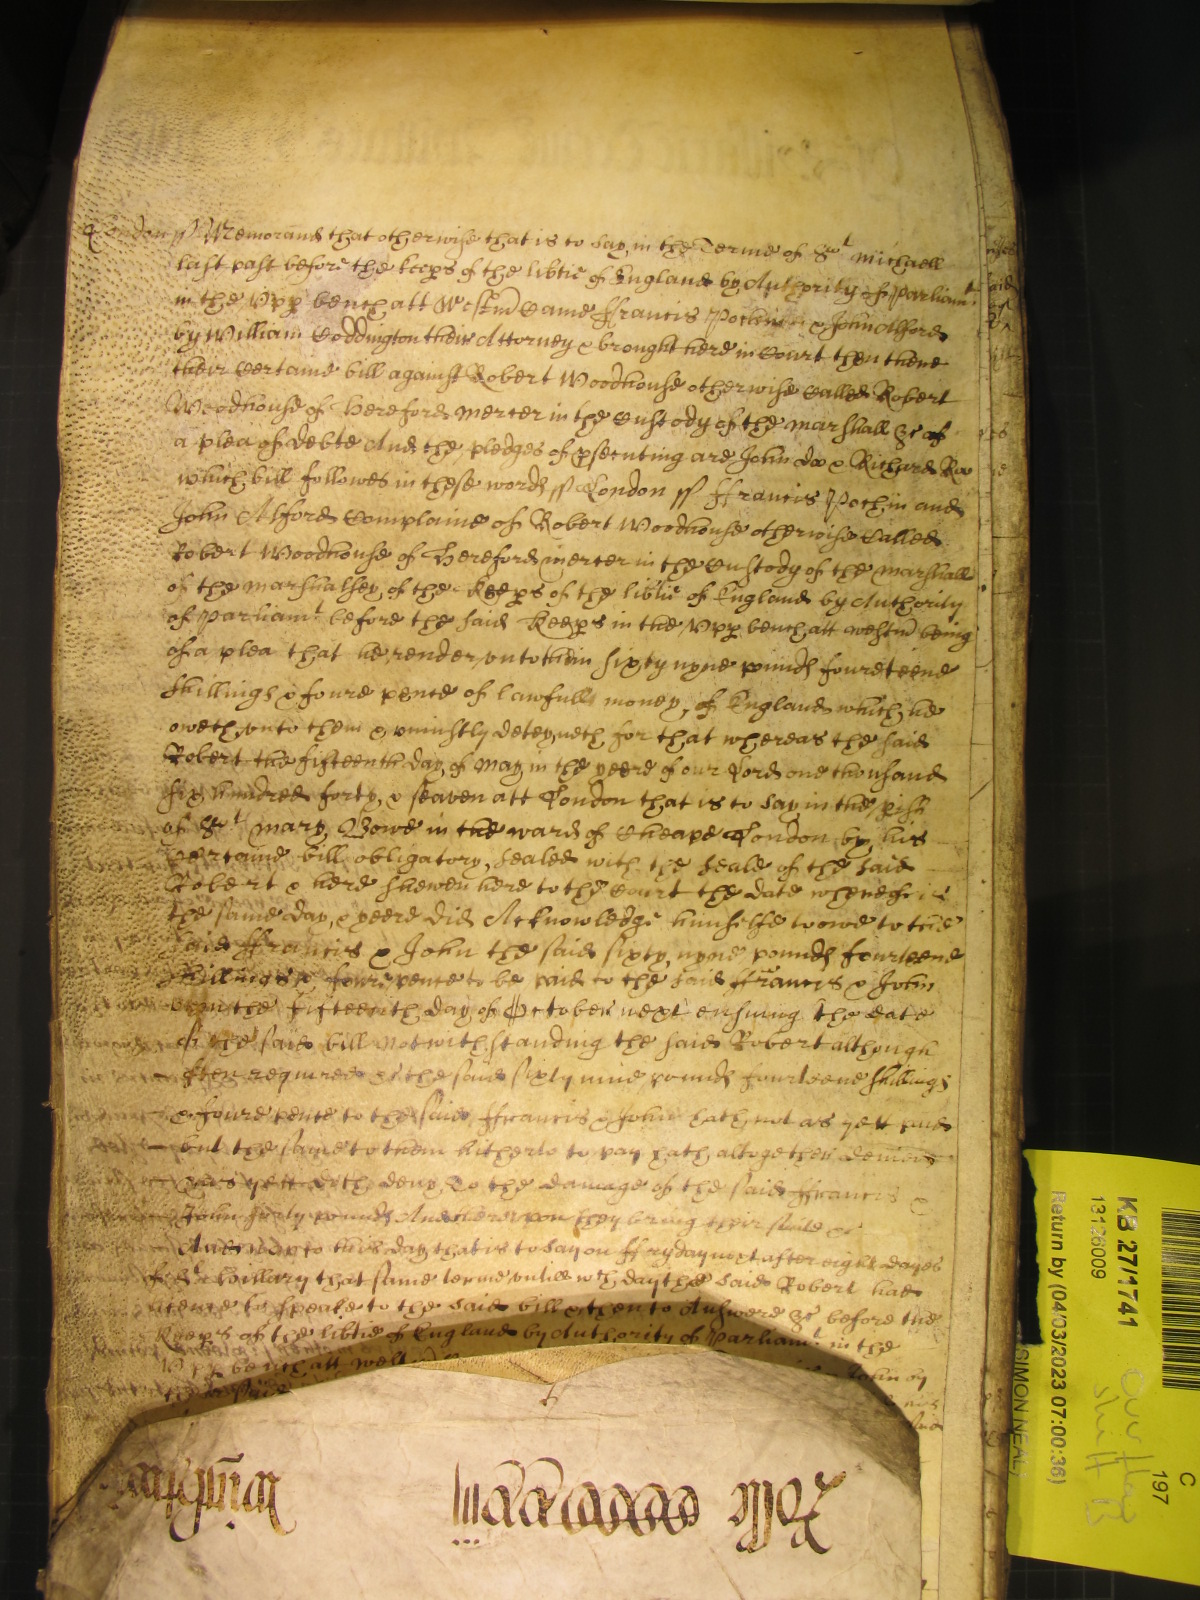 London ss Memorand that otherwise that is to say in the Terme of St Michaell
last past before the keeps of the libtie of England by Authority of Parliamt
in the Upp bench att Westm Came ffrancis Pochin & John Alford
by William Coddington their Attorney & brought here in Court then there
their Certaine bill against Robert Woodhouse otherwise Called Robert
Woodhouse of Hereford mercer in the Custody of the marshall &c of
a plea of debte And the pledges of psecuting are John doo & Richard Roo
which bill followes in these words ss London ss ffrancis Pochin and
John Alford Complaine of Robert Woodhouse otherwise Called
Robert Woodhouse of Hereford mercer in the Custody of the marshall
of the marshalsey of the Keeps of the libtie of England by Authority
of Parliamt before the said Keeps in the Upp bench att westm being
of a plea that he render unto them sixty nyne pounds foureteene
shillings & foure pence of lawfull money of England which he
oweth unto them & uniustly deteyneth for that whereas the said
Robert the fifteenth day of May in the yeere of our Lord one thousand
six hundred forty & seaven att London that is to say in the pish
of St Mary Bowe in the ward of Cheape London by his
Certaine bill obligatory sealed with the seale of the said
Robert & here shewen here to the Court the date whereof is
the same day & yeere did Acknowledge himselfe to owe to the
said ffrancis & John the said sixty nyne pounds fourteene
shillings & foure pence to be paid to the said ffrancis & John
upon the fifteenth day of October next ensuing the date
of the said bill Notwithstanding the said Robert although
often required &c the said sixty nine pounds fourteene shillings
& foure pence to the said ffrancis & John hath not as yett paid
but the same to them hitherto to pay hath altogether denied
& as yett doth deny To the damage of the said ffrancis &
John forty pounds And thereupon they bring their suite &c
And now to this day that is to say on ffryday next after eight dayes
of St hillary that same terme untill wch day the said Robert had
licence to speake to the said bill & then to Answere &c before the
Keeps of the libtie of England by Authority of Parliamt in the
Upp bench att westm
Rolle
KB 27/1741
13126009
Return by (04/03/2023 07:00:36)
SIMON NEAL
C
197